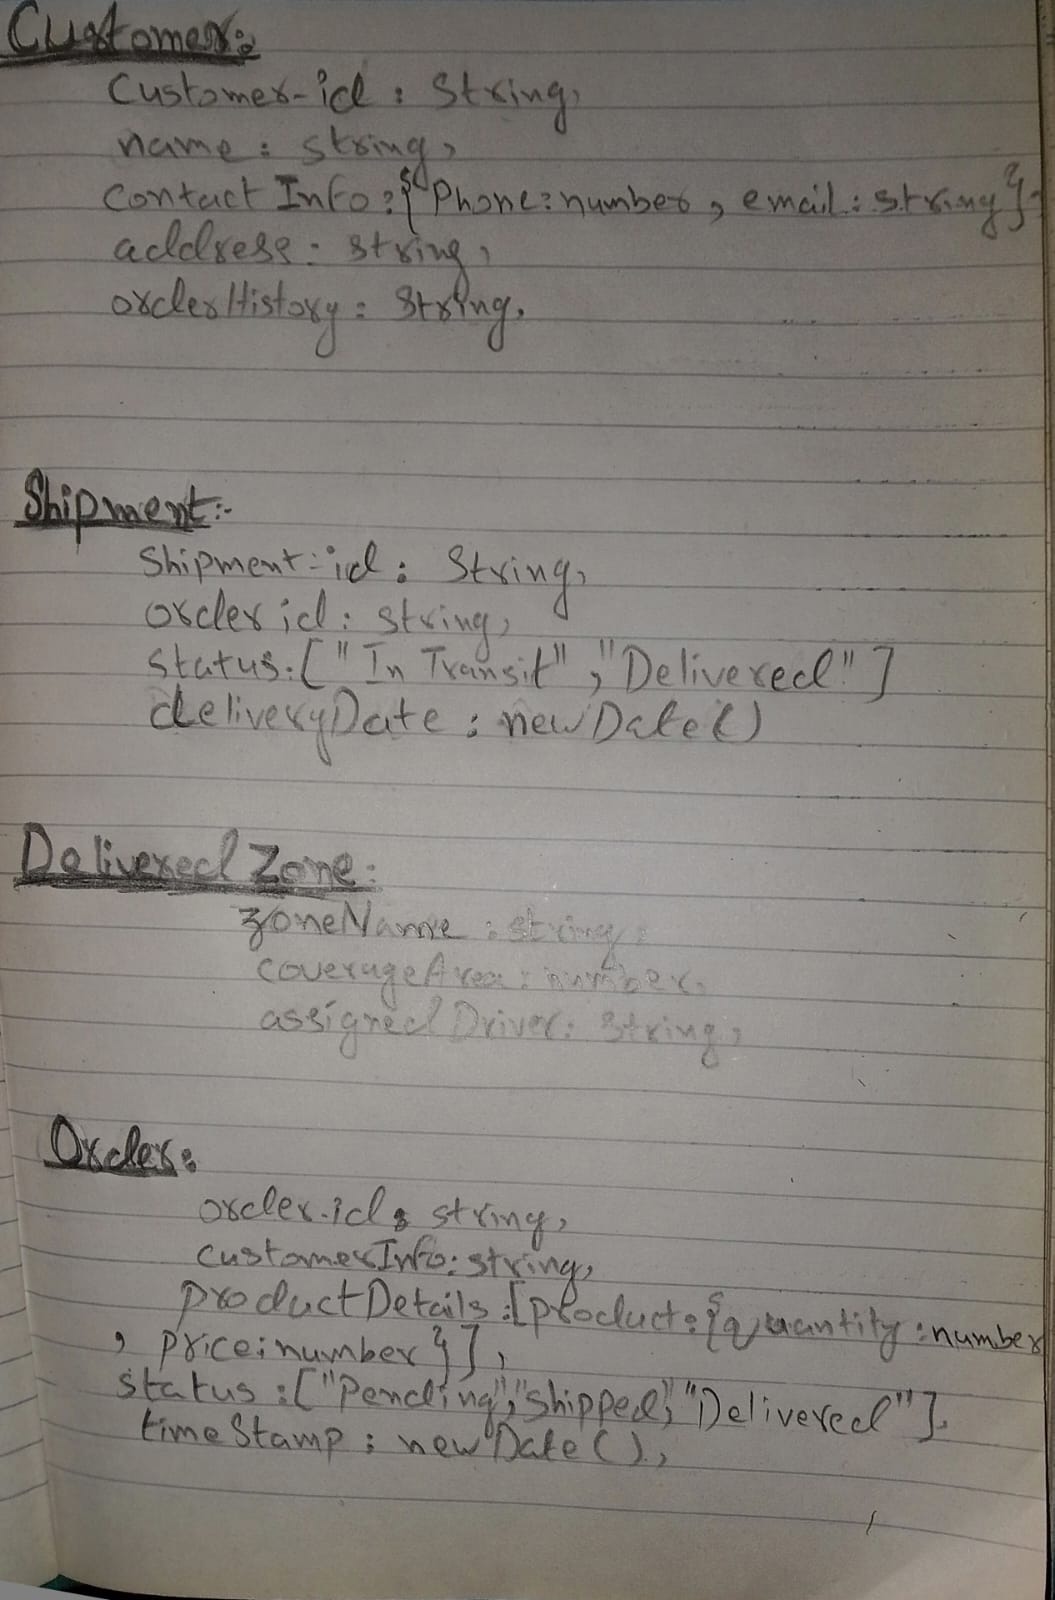 Customer:
Customer-id : String,
name : string,
contact Info : { Phone : number, email : string },
address : string,
orderHistory : String,
Shipment:-
Shipment-id : String,
order id : string,
status : [ "In Transit", "Delivered" ]
deliveryDate : new Date()
Delivered Zone:
zoneName : string,
coverageArea : number,
assigned Driver : string,
Order:
order-id : string,
customerInfo : string,
productDetails : [product : { quantity : number
, price : number } ],
status : ["Pending", "shipped", "Delivered"],
timeStamp : new Date(),